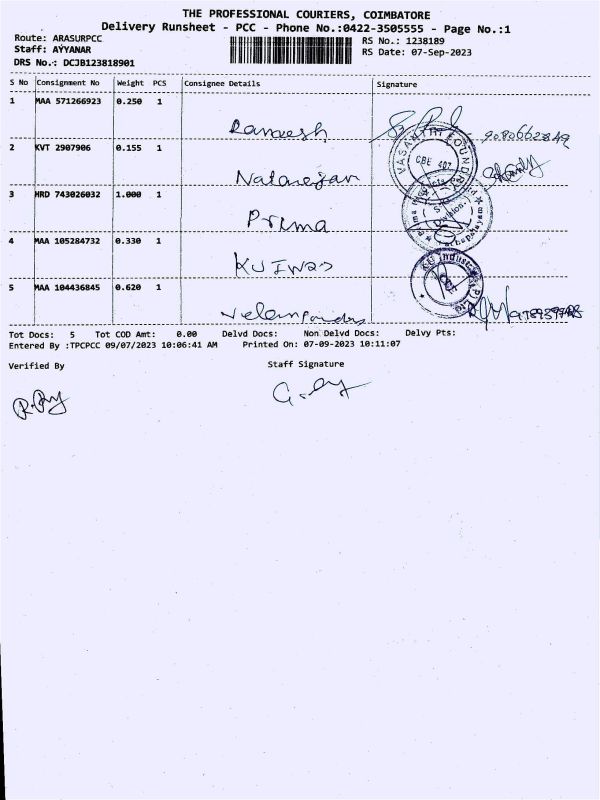 THE PROFESSIONAL COURIERS, COIMBATORE
Delivery Runsheet - PCC - Phone No.:0422-3505555 - Page No.:1
Route: ARASURPCC
Staff: AYYANAR
DRS No.: DCJB123818901
RS No.: 1238189
RS Date: 07-Sep-2023
S No Consignment No Weight PCS Consignee Details Signature
1 MAA 571266923 0.250 1
Ramesh
2 KVT 2907906 0.155 1
VASANTHI FOUNDRY
CBE 407
Natarajan
3 HRD 743026032 1.000 1
Division-
Prima
4 MAA 105284732 0.330 1
KU Industr
5 MAA 104436845 0.620 1
Tot Docs: 5 Tot COD Amt: 0.00 Delvd Docs: Non Delvd Docs: Delvy Pts:
Entered By :TPCPCC 09/07/2023 10:06:41 AM Printed On: 07-09-2023 10:11:07
Verified By Staff Signature